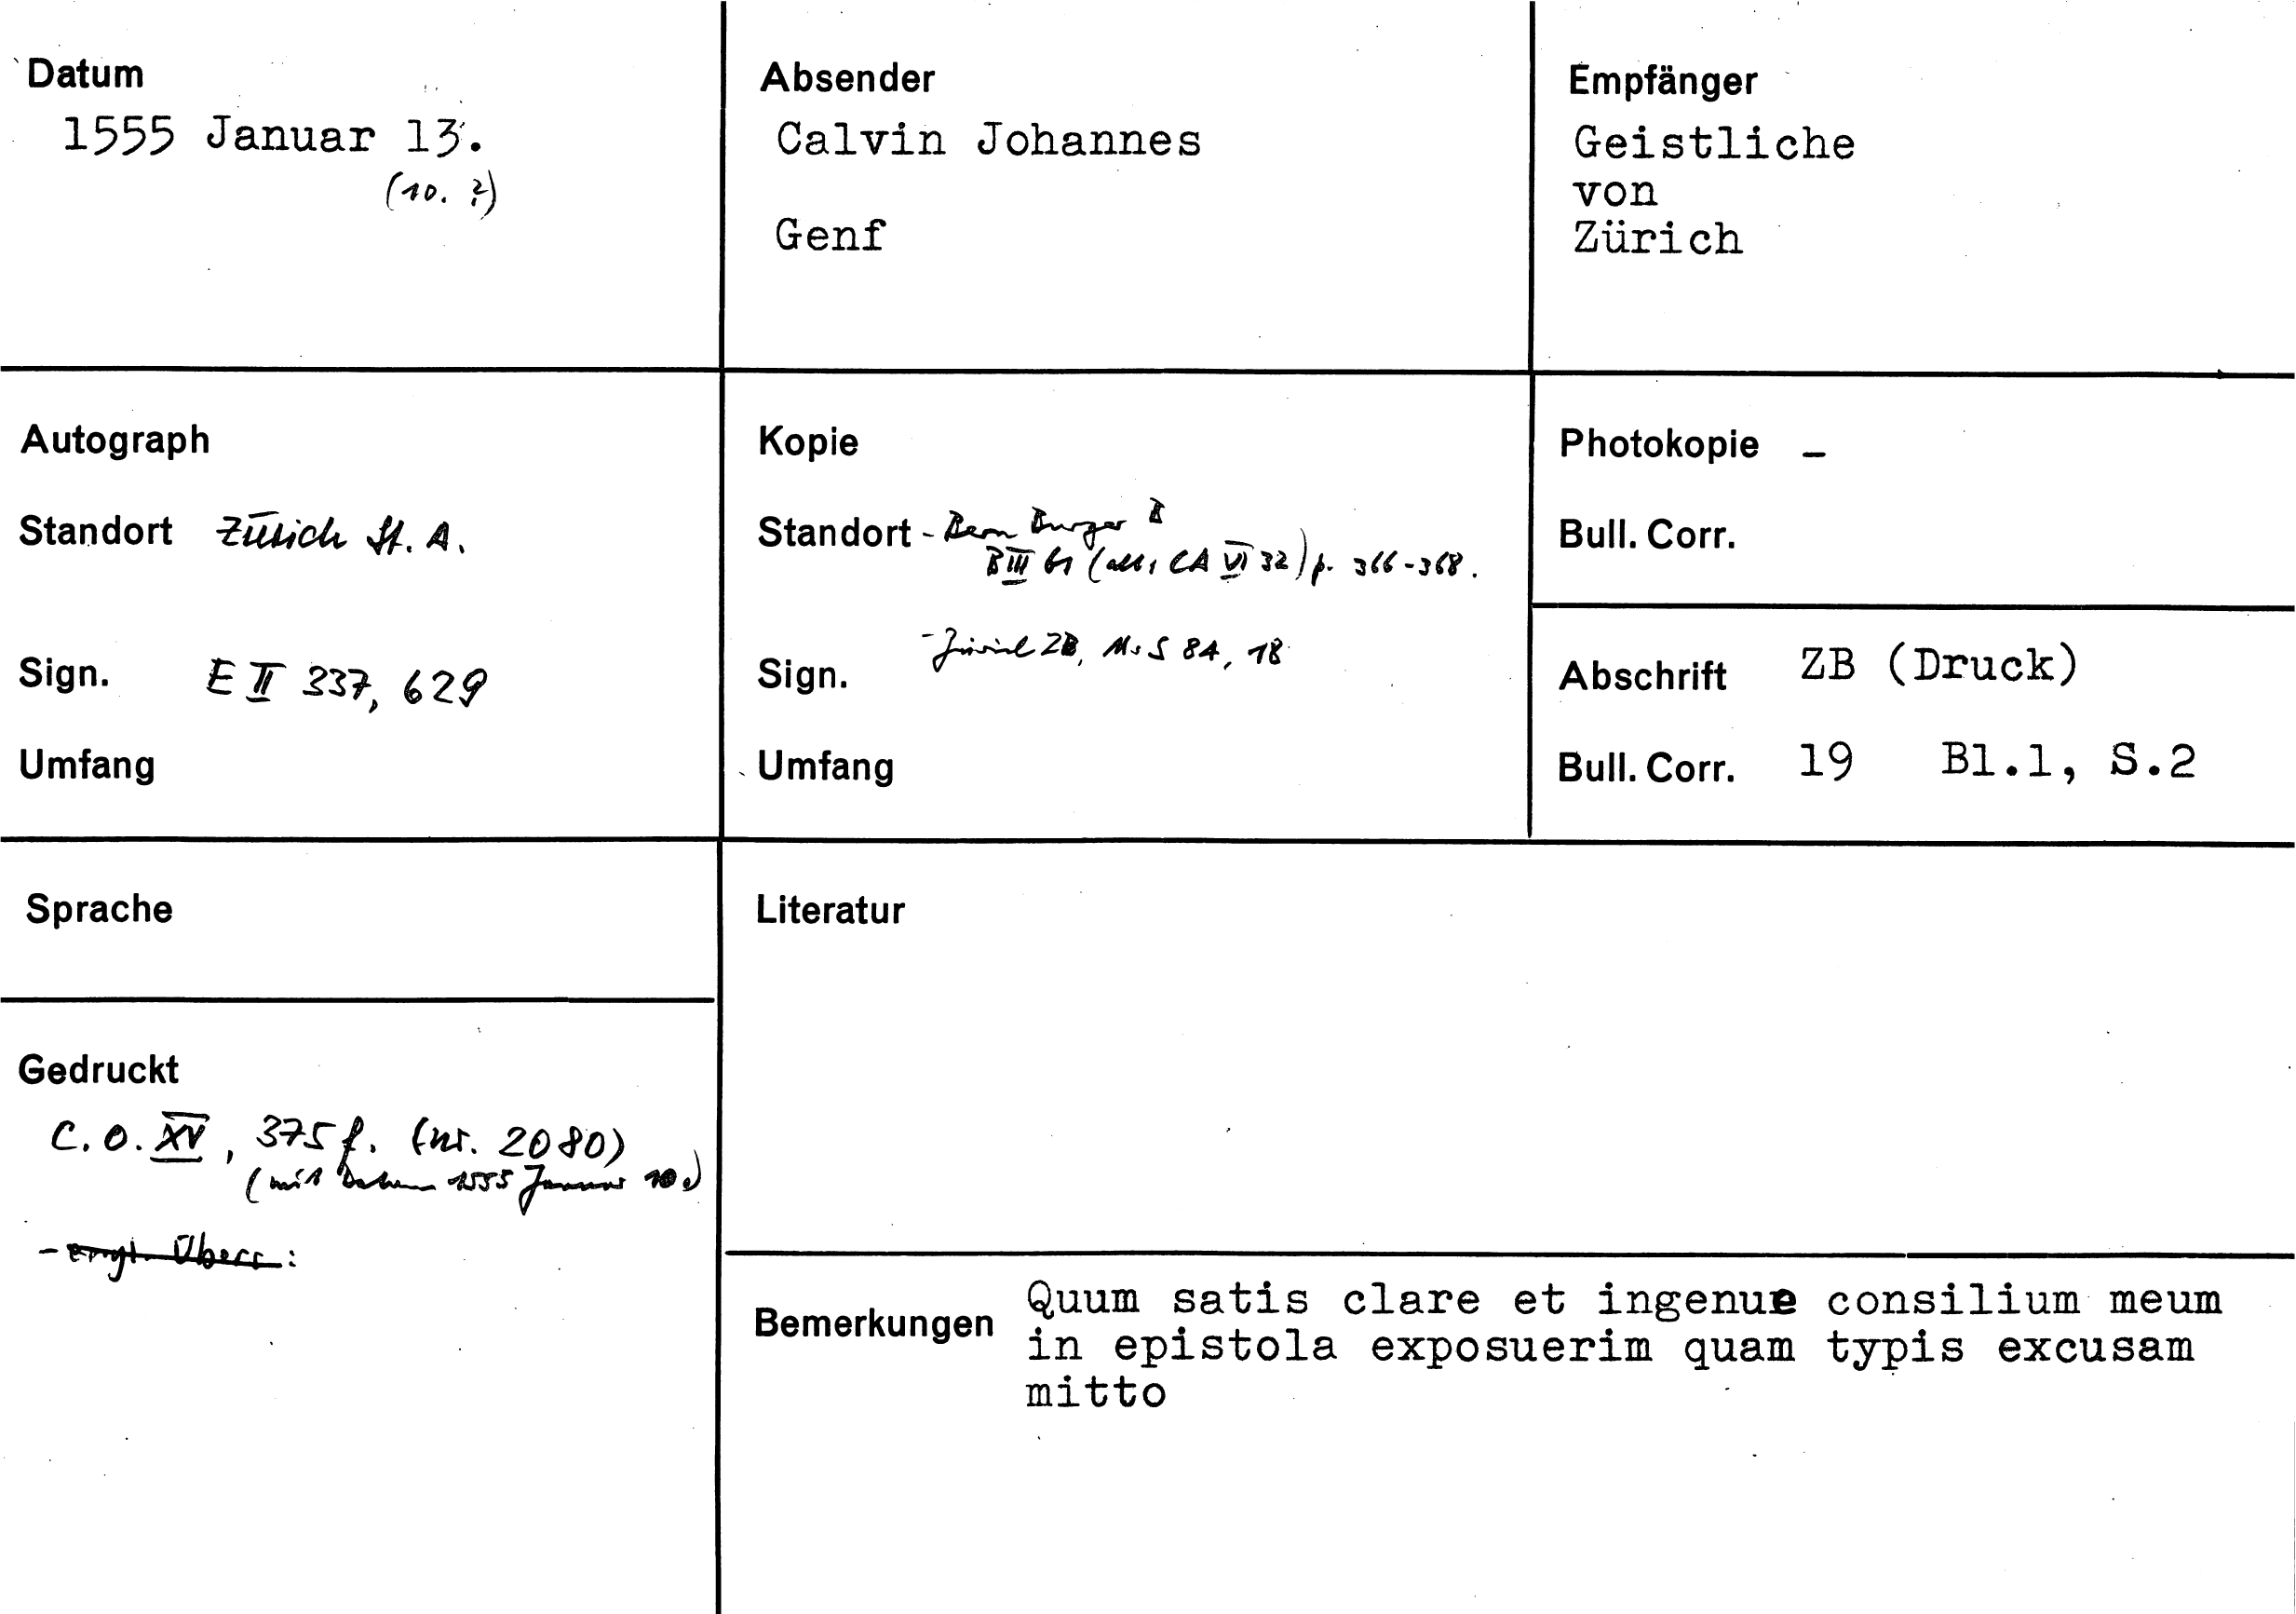 Datum
1555 Januar 13.
(10. ?)
Absender
Calvin Johannes
Genf
Empfänger
Geistliche
von
Zürich
Autograph
Standort Zürich St. A.
Sign. E II 337, 629
Umfang
Kopie
Standort - Bern Burger B
B III 61 (alt: CA VI 32) p. 366-368.
- Zürich ZB, Ms S 84, 18
Sign.
Umfang
Photokopie -
Bull. Corr.
Abschrift ZB (Druck)
Bull. Corr. 19 Bl.1, S.2
Sprache
Gedruckt
C. O. XV, 375 f. (nr. 2080)
(mit Datum 1555 Januar 10.)
- engl. Übers.:
Literatur
Bemerkungen Quum satis clare et ingenue consilium meum
in epistola exposuerim quam typis excusam
mitto